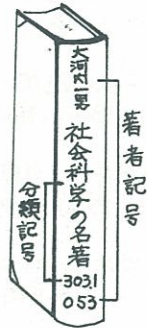 大河内一男
社会科学の名著
303.1
053
著者記号
分類記号